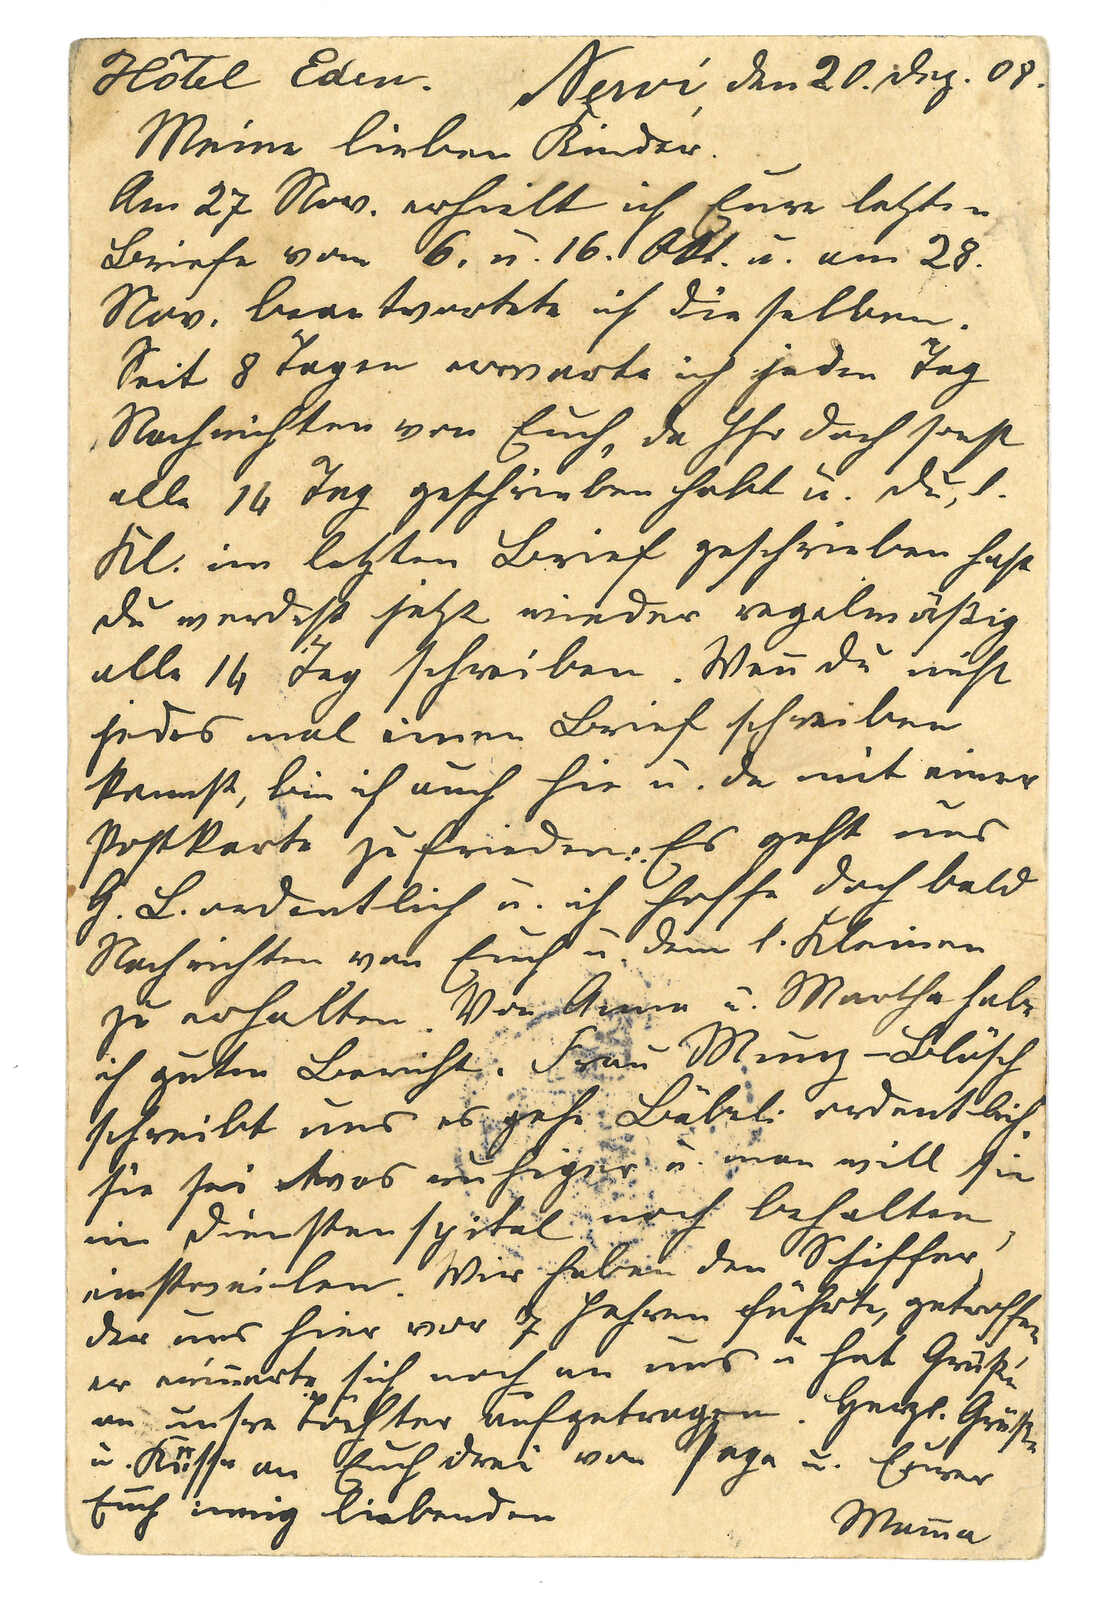 Hôtel Eden. Nervi, den 20. Dez. 08.
Meine lieben Kinder.
Am 27 Nov. erhielt ich Eure letzten
Briefe vom 6. u. 16. Okt. u. am 28.
Nov. beantwortete ich dieselben.
Seit 8 Tagen erwarte ich jeden Tag
Nachrichten von Euch, da Ihr doch sonst
alle 14 Tag geschrieben habt u. Du, l.
Kl. im letzten Brief geschrieben hast
du werdest jetzt wieder regelmäßig
alle 14 Tag schreiben. Wenn du nicht
jedes mal einen Brief schreiben
kannst, bin ich auch hie u. da mit einer
Postkarte zufrieden. Es geht uns
G. L. ordentlich u. ich hoffe doch bald
Nachrichten von Euch u. dem l. Kleinen
zu erhalten. Von Anna u. Martha habe
ich guten Bericht. Frau Munz-Blösch
schreibt uns es gehe Bäbel. ordentlich.
sie sei etwas ruhiger u. man will sie
im Dienstenspital noch behalten,
einstweilen. Wir haben den Schiffer,
der uns hier vor 7 Jahren führte, getroffen
er erinnerte sich noch an uns u hat Grüße
an unsre Töchter aufgetragen. Herzl. Grüße
u. Küsse an Euch drei von Papa u. Eurer
Euch innig liebenden Mama